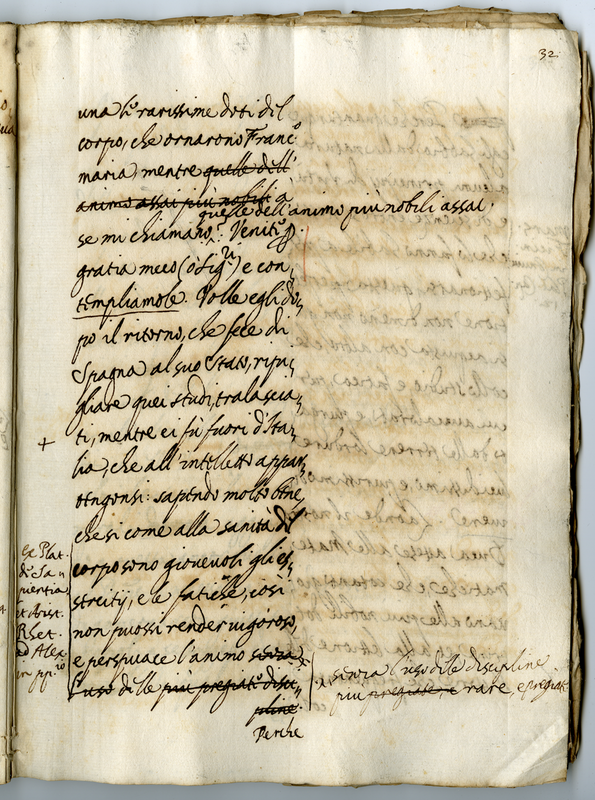 32.
una rarissime doti del
corpo, che ornarono Franc.º
maria, mentre quelle dell'
animo assai più nobili a
quelle dell'animo più nobili assai
se mi chiamano. Venite
gratia meco (ò Sig.ri) e con„
templiamole. Volle egli do„
po il ritorno, che fece di
Spagna al suo Stato, ripi„
gliare quei studi, tralascia„
ti, mentre ei fù fuori d'Ita„
lia, che all'intelletto appar„
tengonsi: sapendo molto bene,
che si come alla sanità del
corpo sono giovevoli gli es„
sercitij, e le fatiche, così
non puossi render vigoroso,
e perspicace l'animo senza
l'uso delle più pregiate disci„
pline.
Perche
+
Ex Plat.
de Sa„
pientia
et Arist.
Rhet.
ad Alex.
in pp.io
senza l'uso dele discipline
più pregiate, e rare, e pregiate